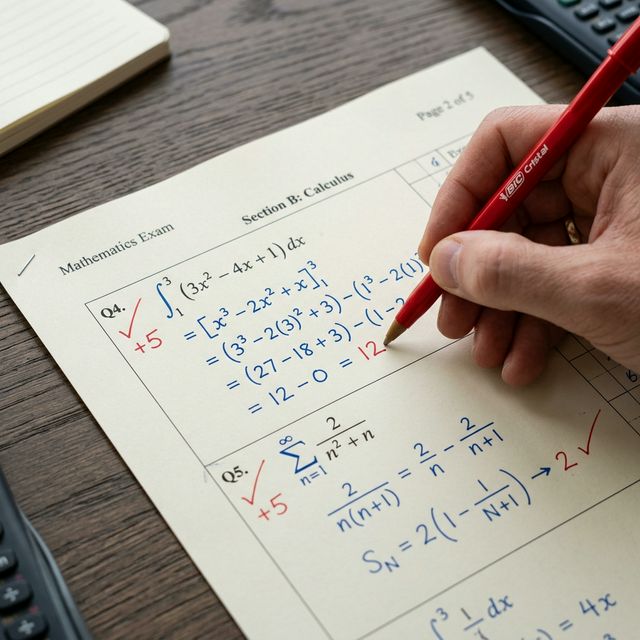 Page 2 of 5
Mathematics Exam
Section B: Calculus
Q4. ∫₁³ (3x² − 4x + 1) dx
✓ +5
= [x³ − 2x² + x]₁³
= (3³ − 2(3)² + 3) − (1³ − 2(1)
= (27 − 18 + 3) − (1 − 2
= 12 − 0 = 12
Q5. ∑ₙ₌₁^∞ 2/(n² + n)
✓ +5
2/(n(n+1)) = 2/n − 2/(n+1)
S_N = 2(1 − 1/(N+1)) → 2 ✓
BIC Cristal